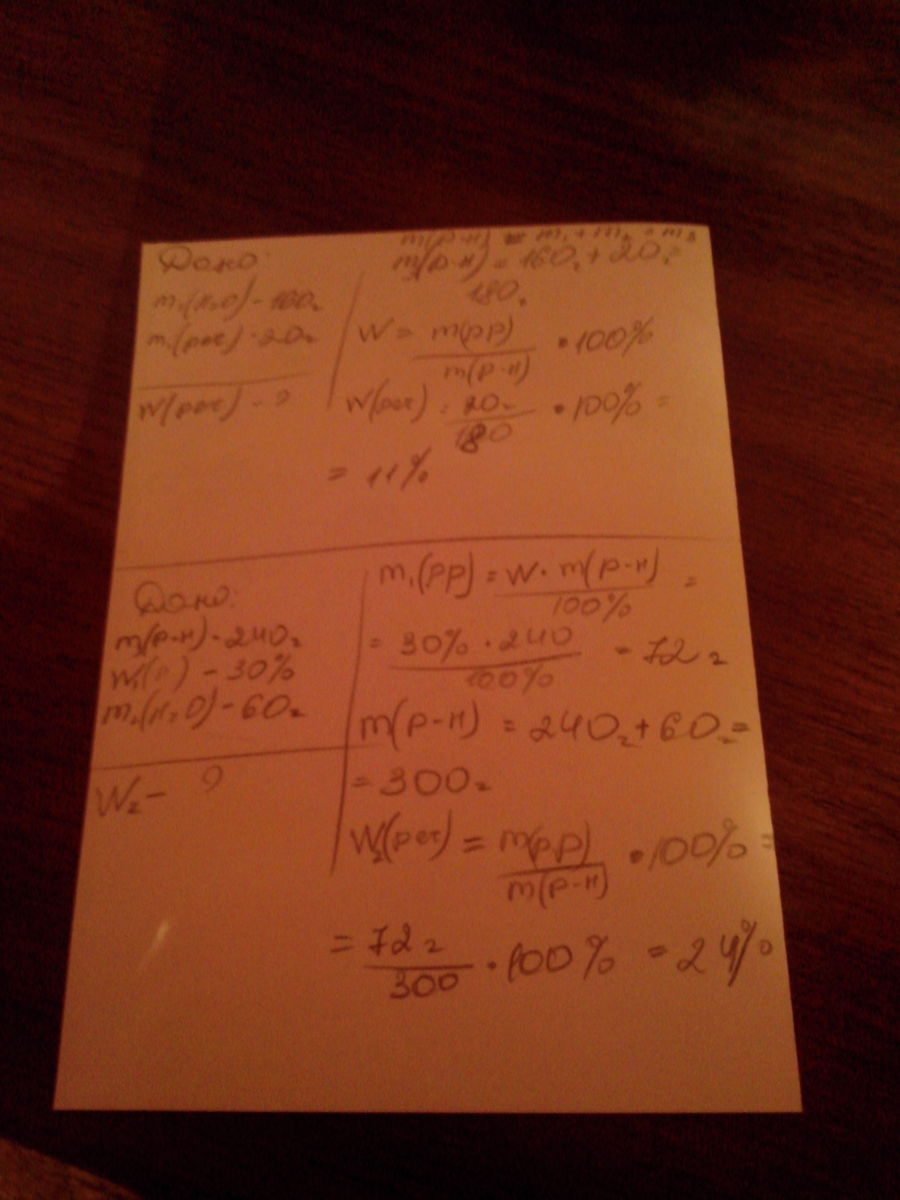 Дано:
m₁(H₂O) - 160г
m₁(реч) - 20г
W(реч) - ?
m(р-н) = m₁ + m₂ =
m(р-н) = 160г + 20г =
180г
W = m(рр) / m(р-н) • 100%
W(реч) = 20г / 180 • 100% =
= 11%
Дано:
m(р-н) - 240г
W₁( ) - 30%
m₂(H₂O) - 60г
W₂ - ?
m₁(рр) = W • m(р-н) / 100% =
= 30% • 240 / 100% = 72г
m(р-н) = 240г + 60г =
= 300г
W₂(реч) = m(рр) / m(р-н) • 100% =
= 72г / 300 • 100% = 24%